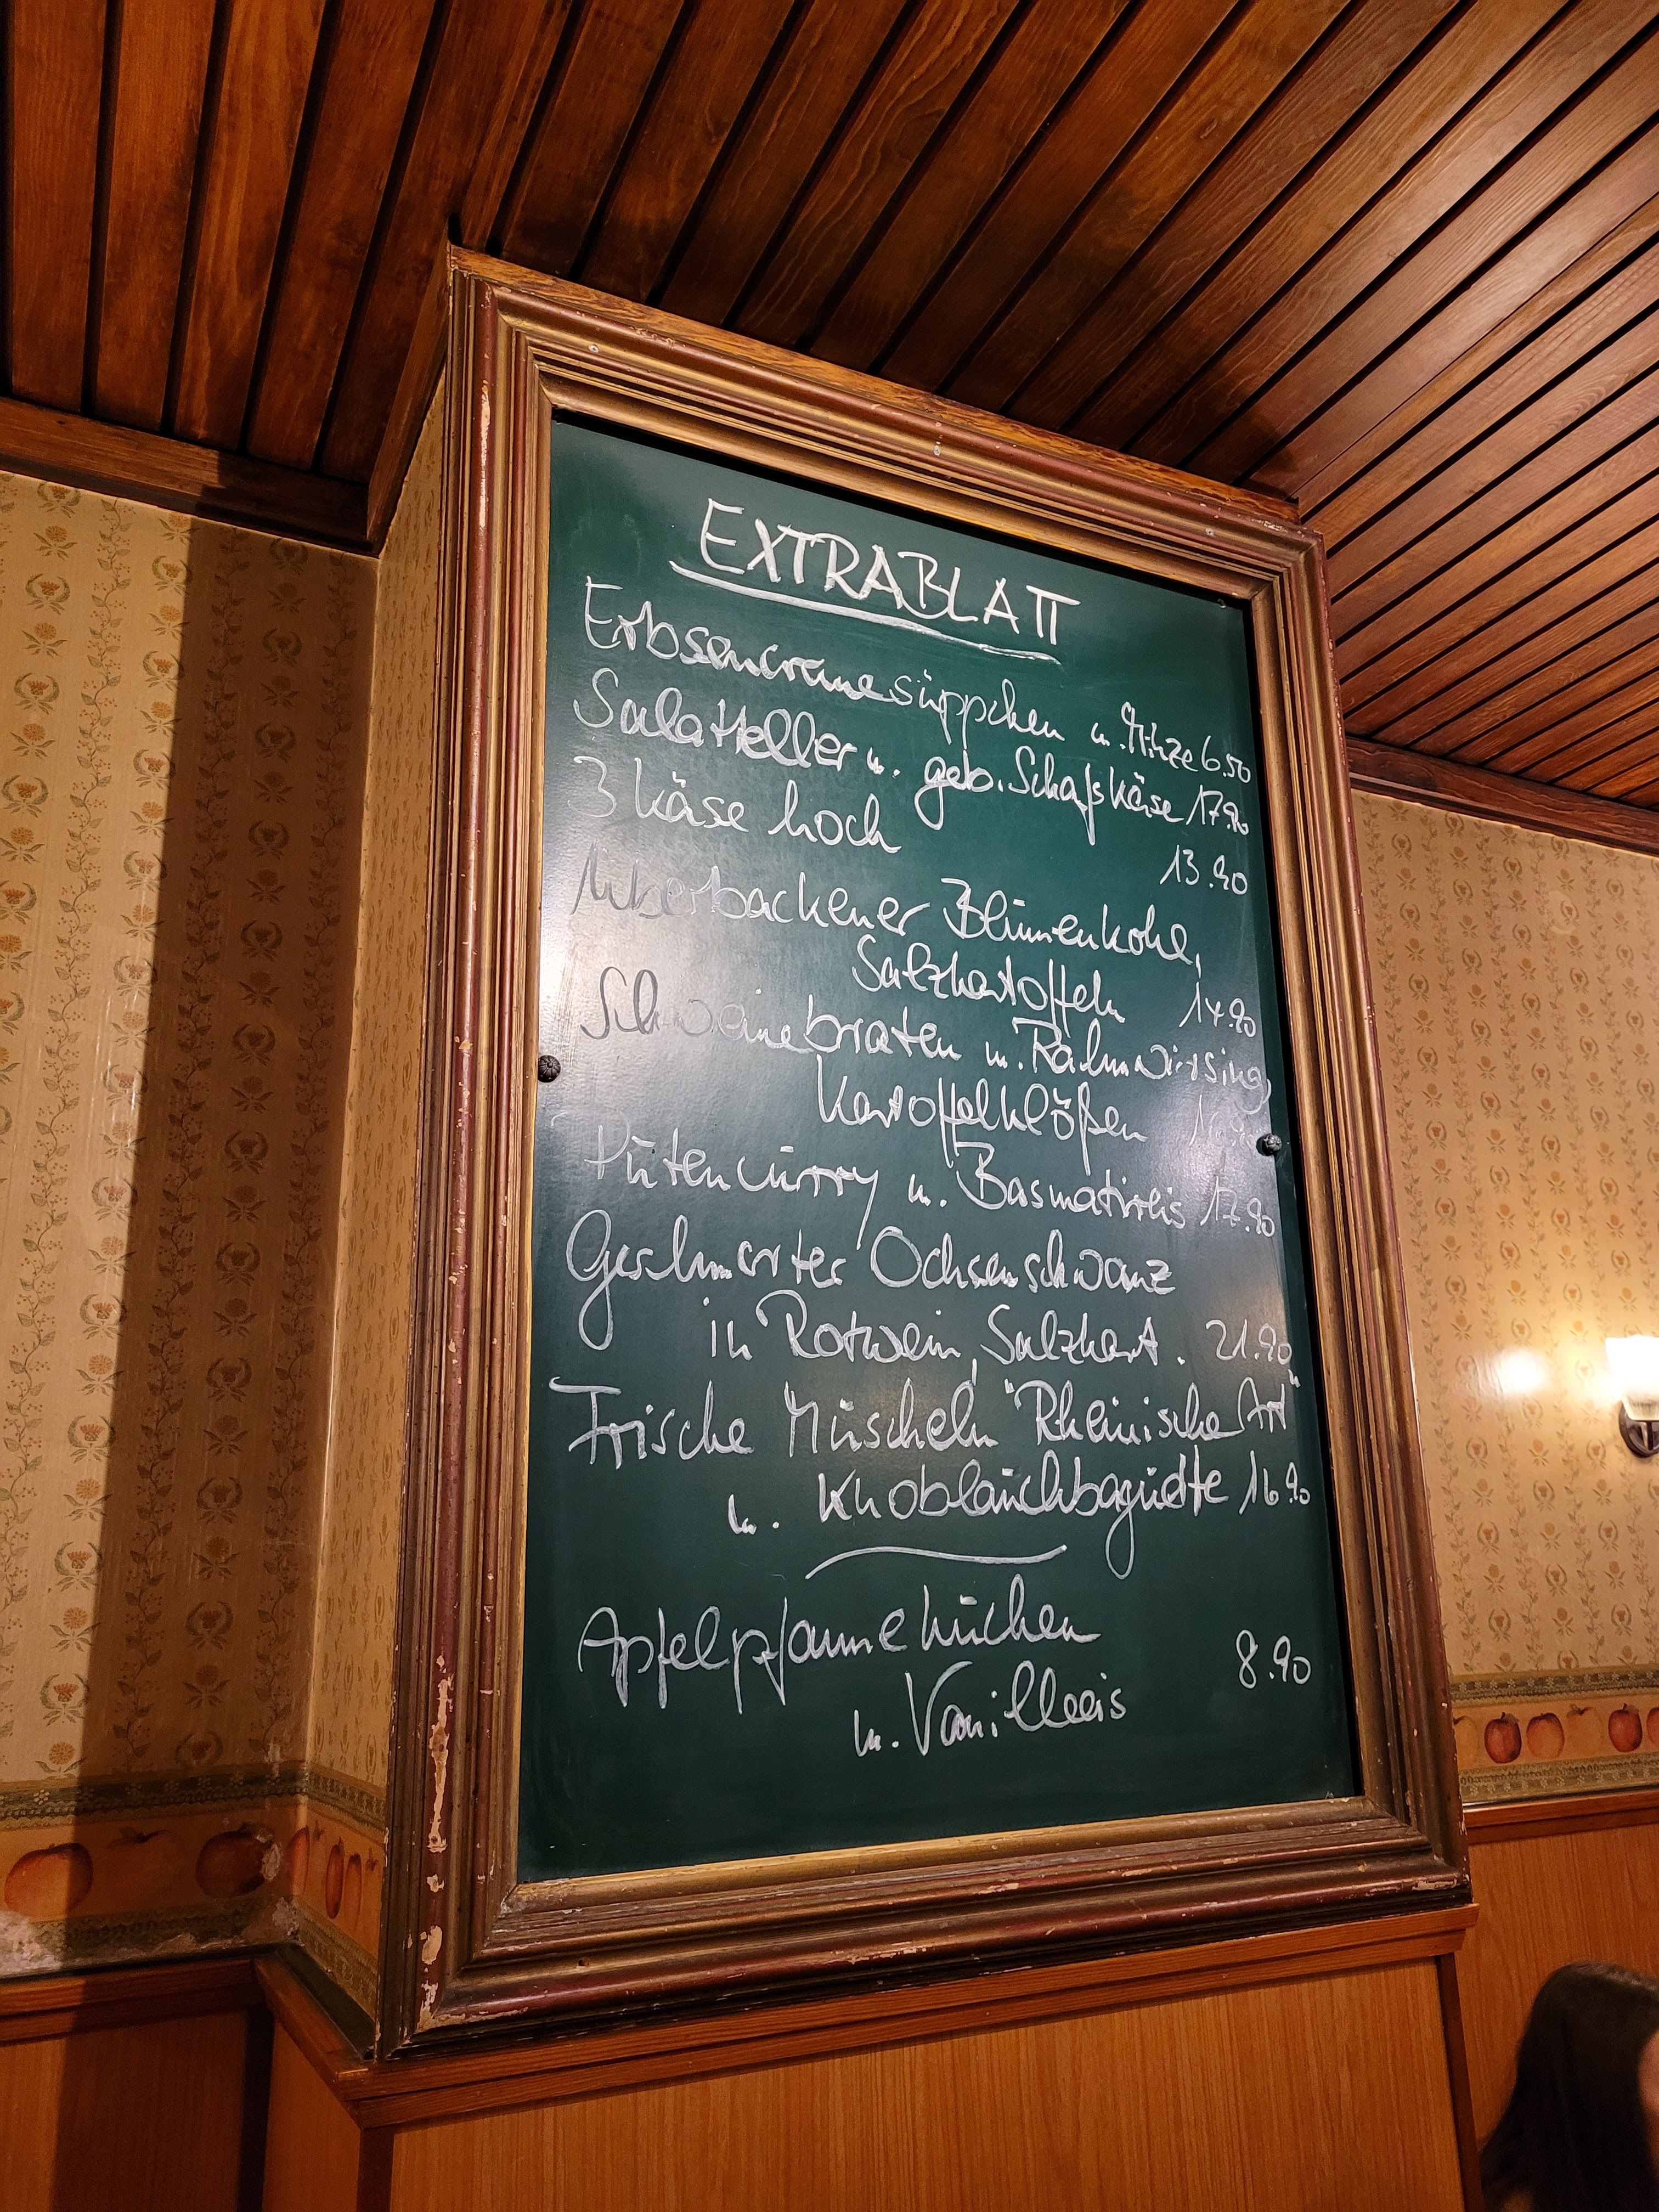 EXTRABLATT
Erbsencremesüppchen m. Minze 6.50
Salatteller m. geb. Schafskäse 17.90
3 käse hoch 13.90
Überbackener Blumenkohl,
Salzkartoffeln 14.90
Schweinebraten m. Rahmwirsing,
Kartoffelklößen
Putencurry m. Basmatireis 17.90
Geschmorter Ochsenschwanz
in Rotwein, Salzkart. 21.90
Frische Muscheln "Rheinische Art"
m. Knoblauchbaguette 16.90
Apfelpfannekuchen
m. Vanilleeis 8.90